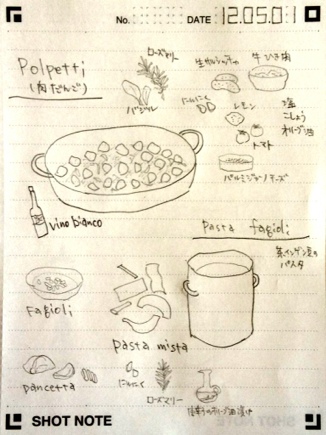 No. DATE 12.05.01
Polpetti
(肉だんご)
ローズマリー
バジル
生サルシッチャ
牛ひき肉
にんにく
レモン
塩
こしょう
オリーブ油
トマト
パルミジャーノチーズ
vino bianco
pasta fagioli
茶インゲン豆の
パスタ
Fagioli
pasta mista
pancetta
にんにく
ローズマリー
唐辛子のオリーブ油漬け
SHOT NOTE